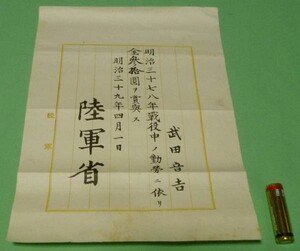 武田音吉
明治三十七八年戰役中ノ勤勞ニ依リ
金參拾圓ヲ賞與ス
明治三十九年四月一日
陸軍省